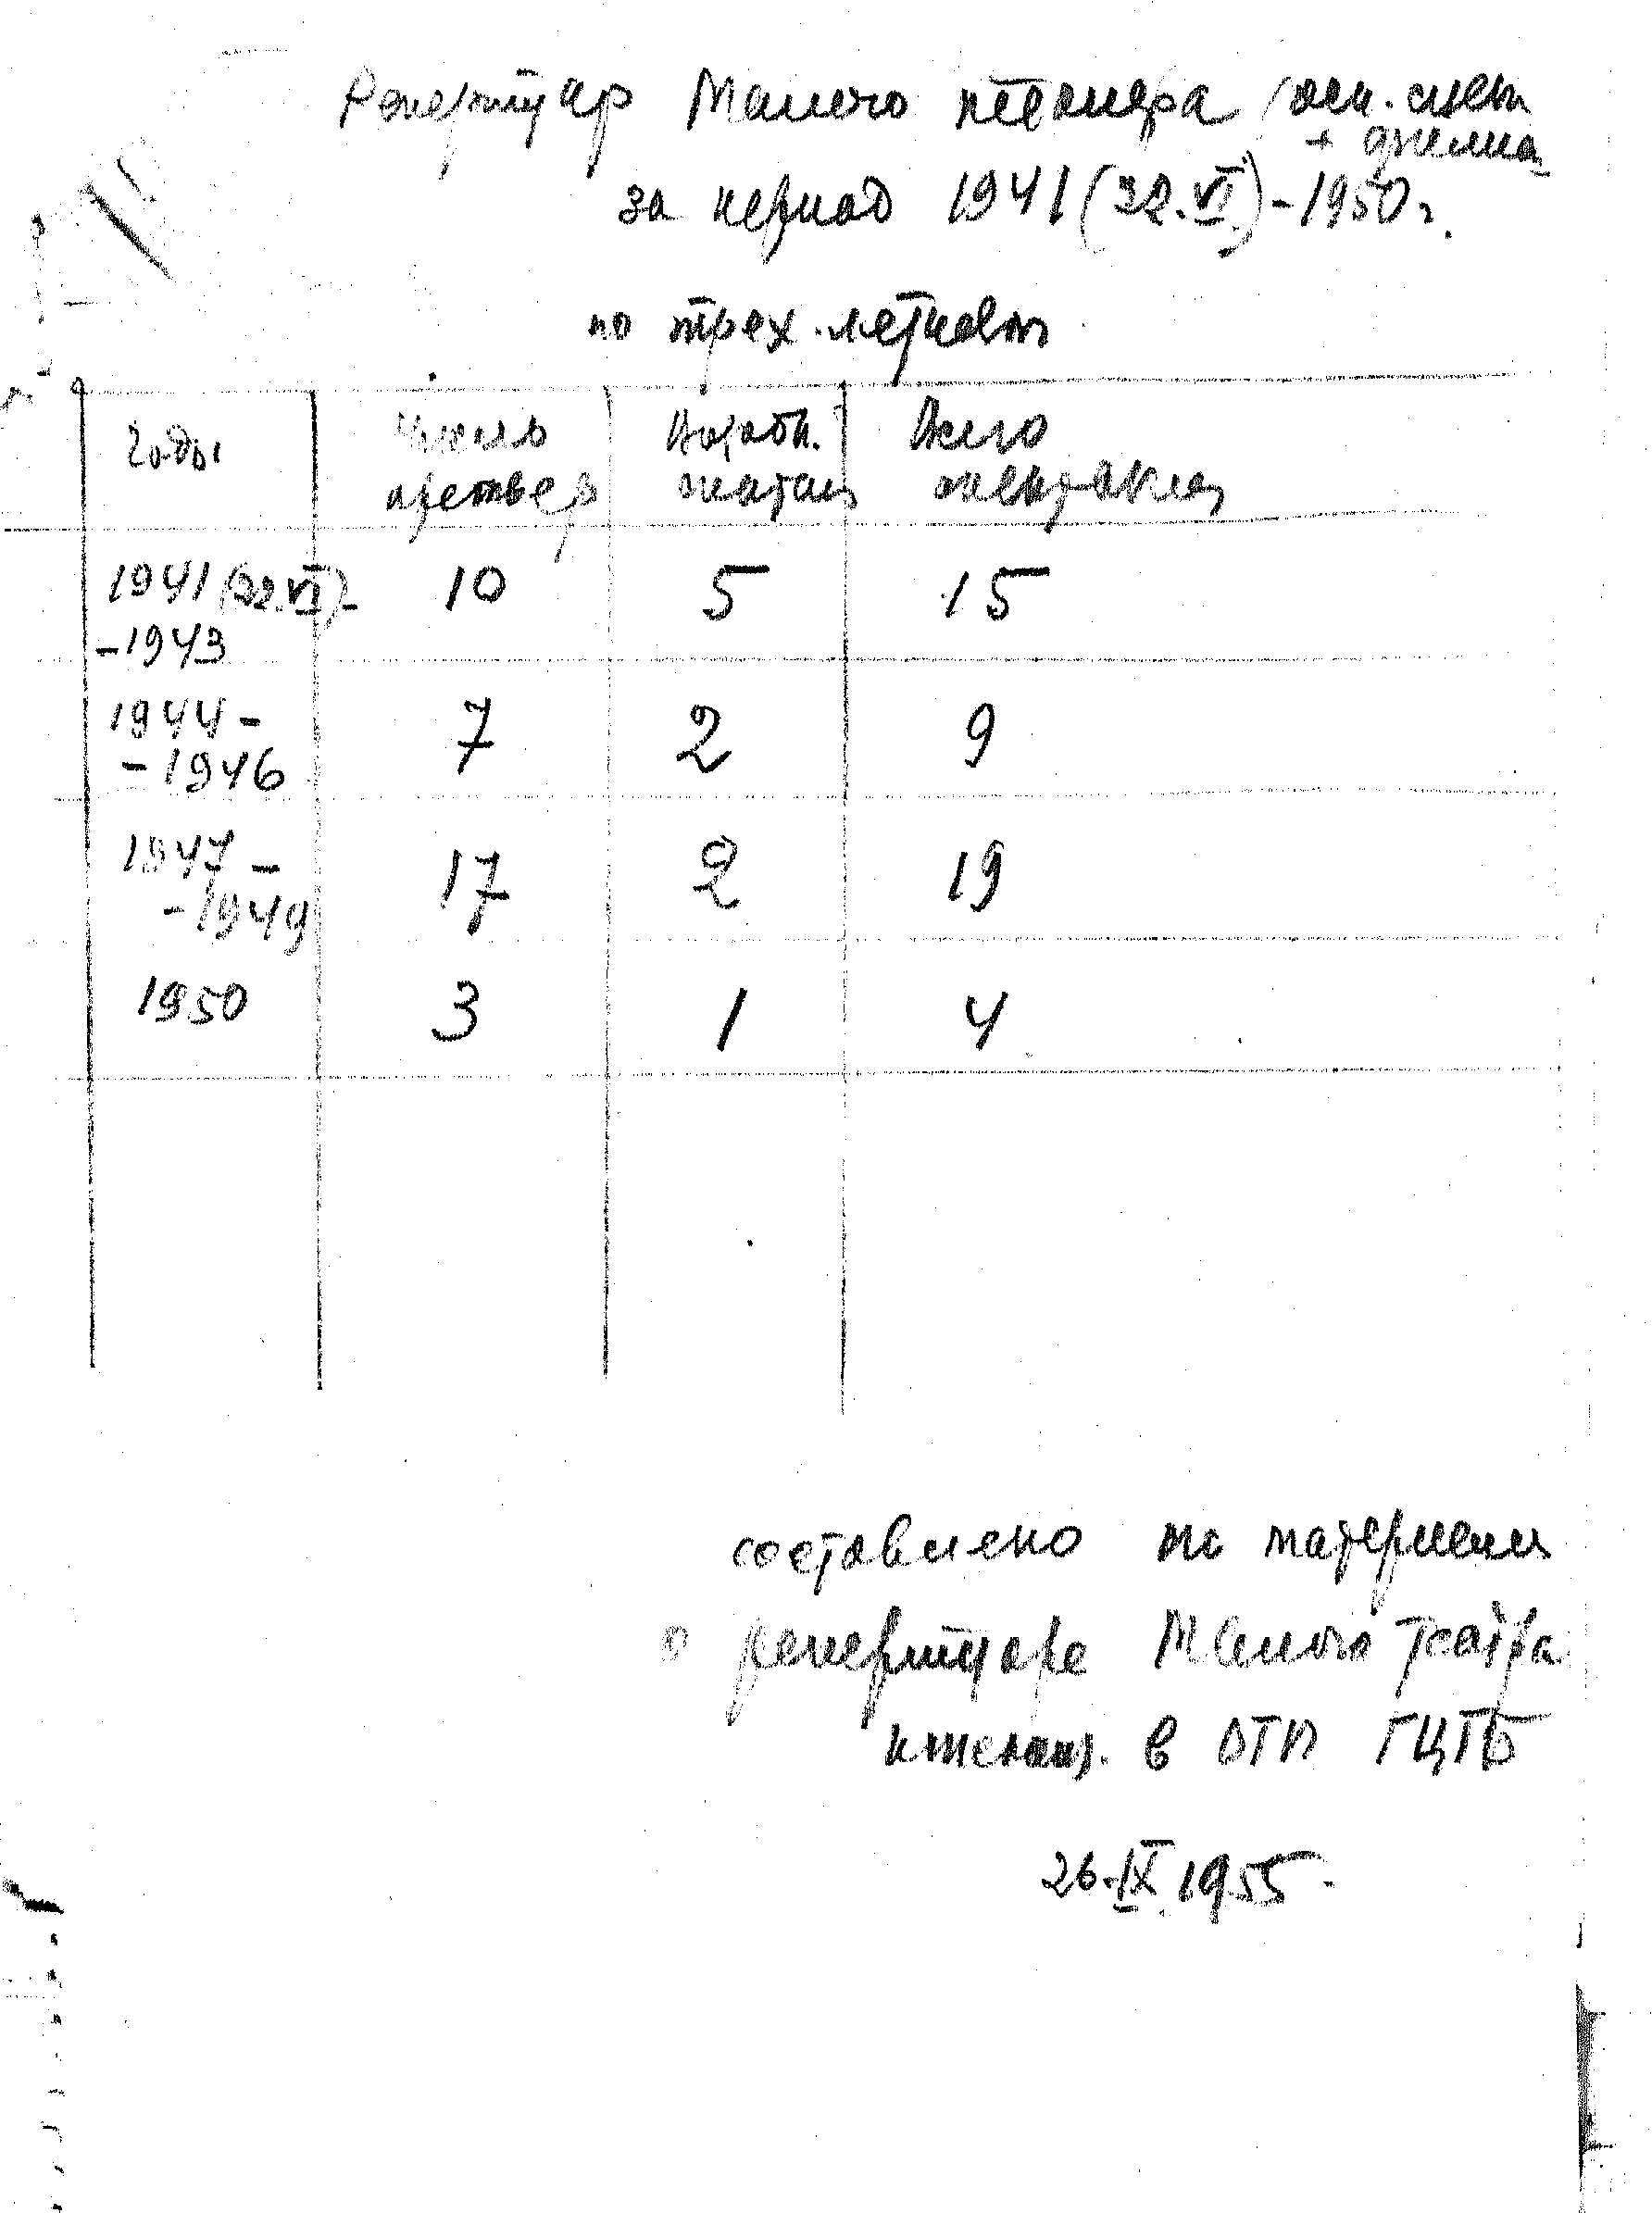 Репертуар Малого театра /осн. сцена
+ филиал
за период 1941 (22.VI) - 1950 г.
по трех-летиям
Годы Число премьер Возобн. Всего спектаклей
1941 (22.VI) - 10 5 15
- 1943
1944 - 7 2 9
- 1946
1947 - 17 2 19
- 1949
1950 3 1 4
составлено по материалам
о репертуаре Малого театра
в ГЦТБ
26.IX.1955.